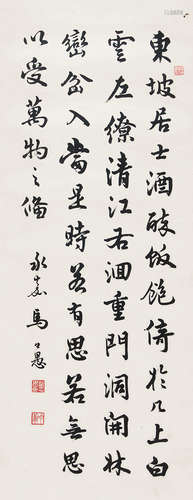 東坡居士酒醉飯飽倚於几上白
雲左繚清江右洄重門洞開林
巒岔入當是時若有思若無思
以受萬物之備
永嘉馬公愚